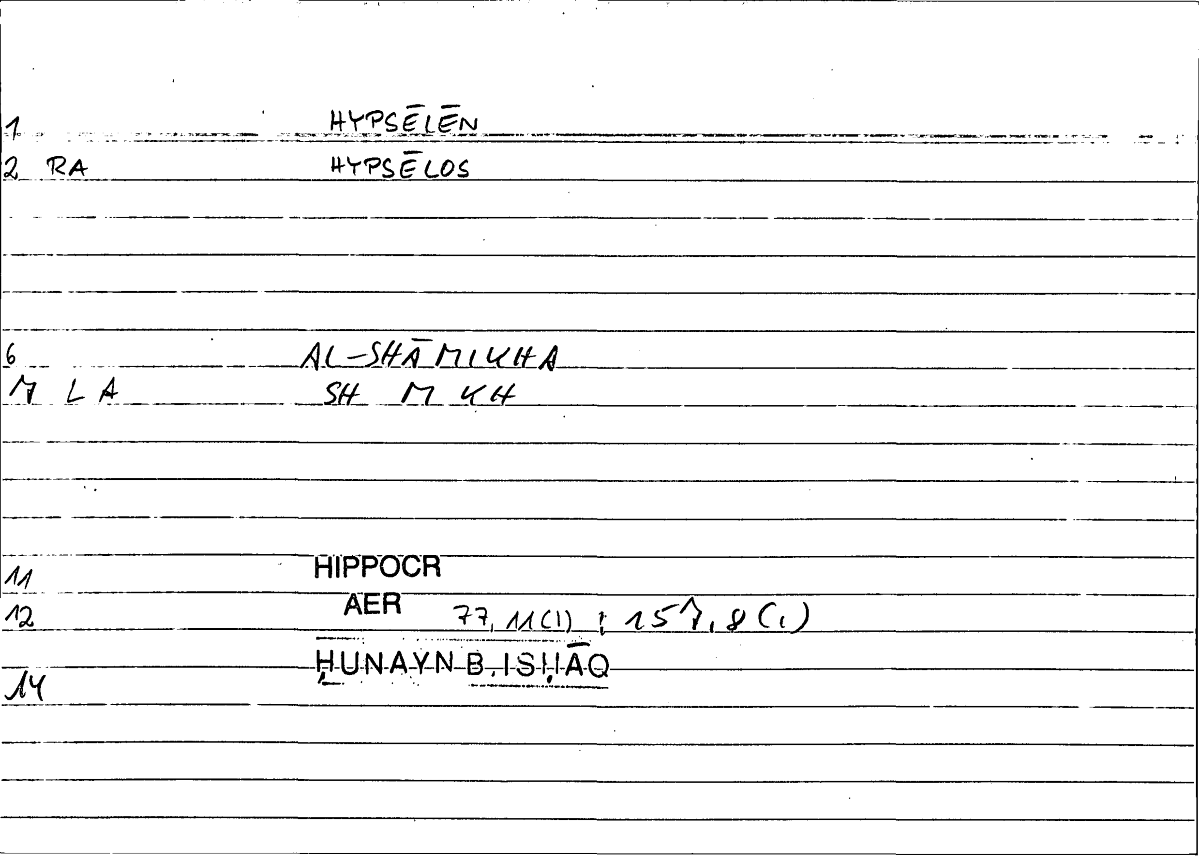 1 HYPSĒLĒN
2 RA HYPSĒLOS
6 AL-SHĀMIKHA
7 LA SH M KH
11 HIPPOCR
12 AER 77, 11(1) ; 157, 8(1)
ḤUNAYN B. ISḤĀQ
14